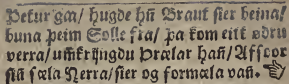 Petur gaa/ hugde hn̄ Braut sier beina/
buna þeim Solle fra/ þa kom eitt ødru
verra/ umkrijngdu Þrælar hañ/ Afsvor
siñ sæla Herra/ sier og formæla vañ.